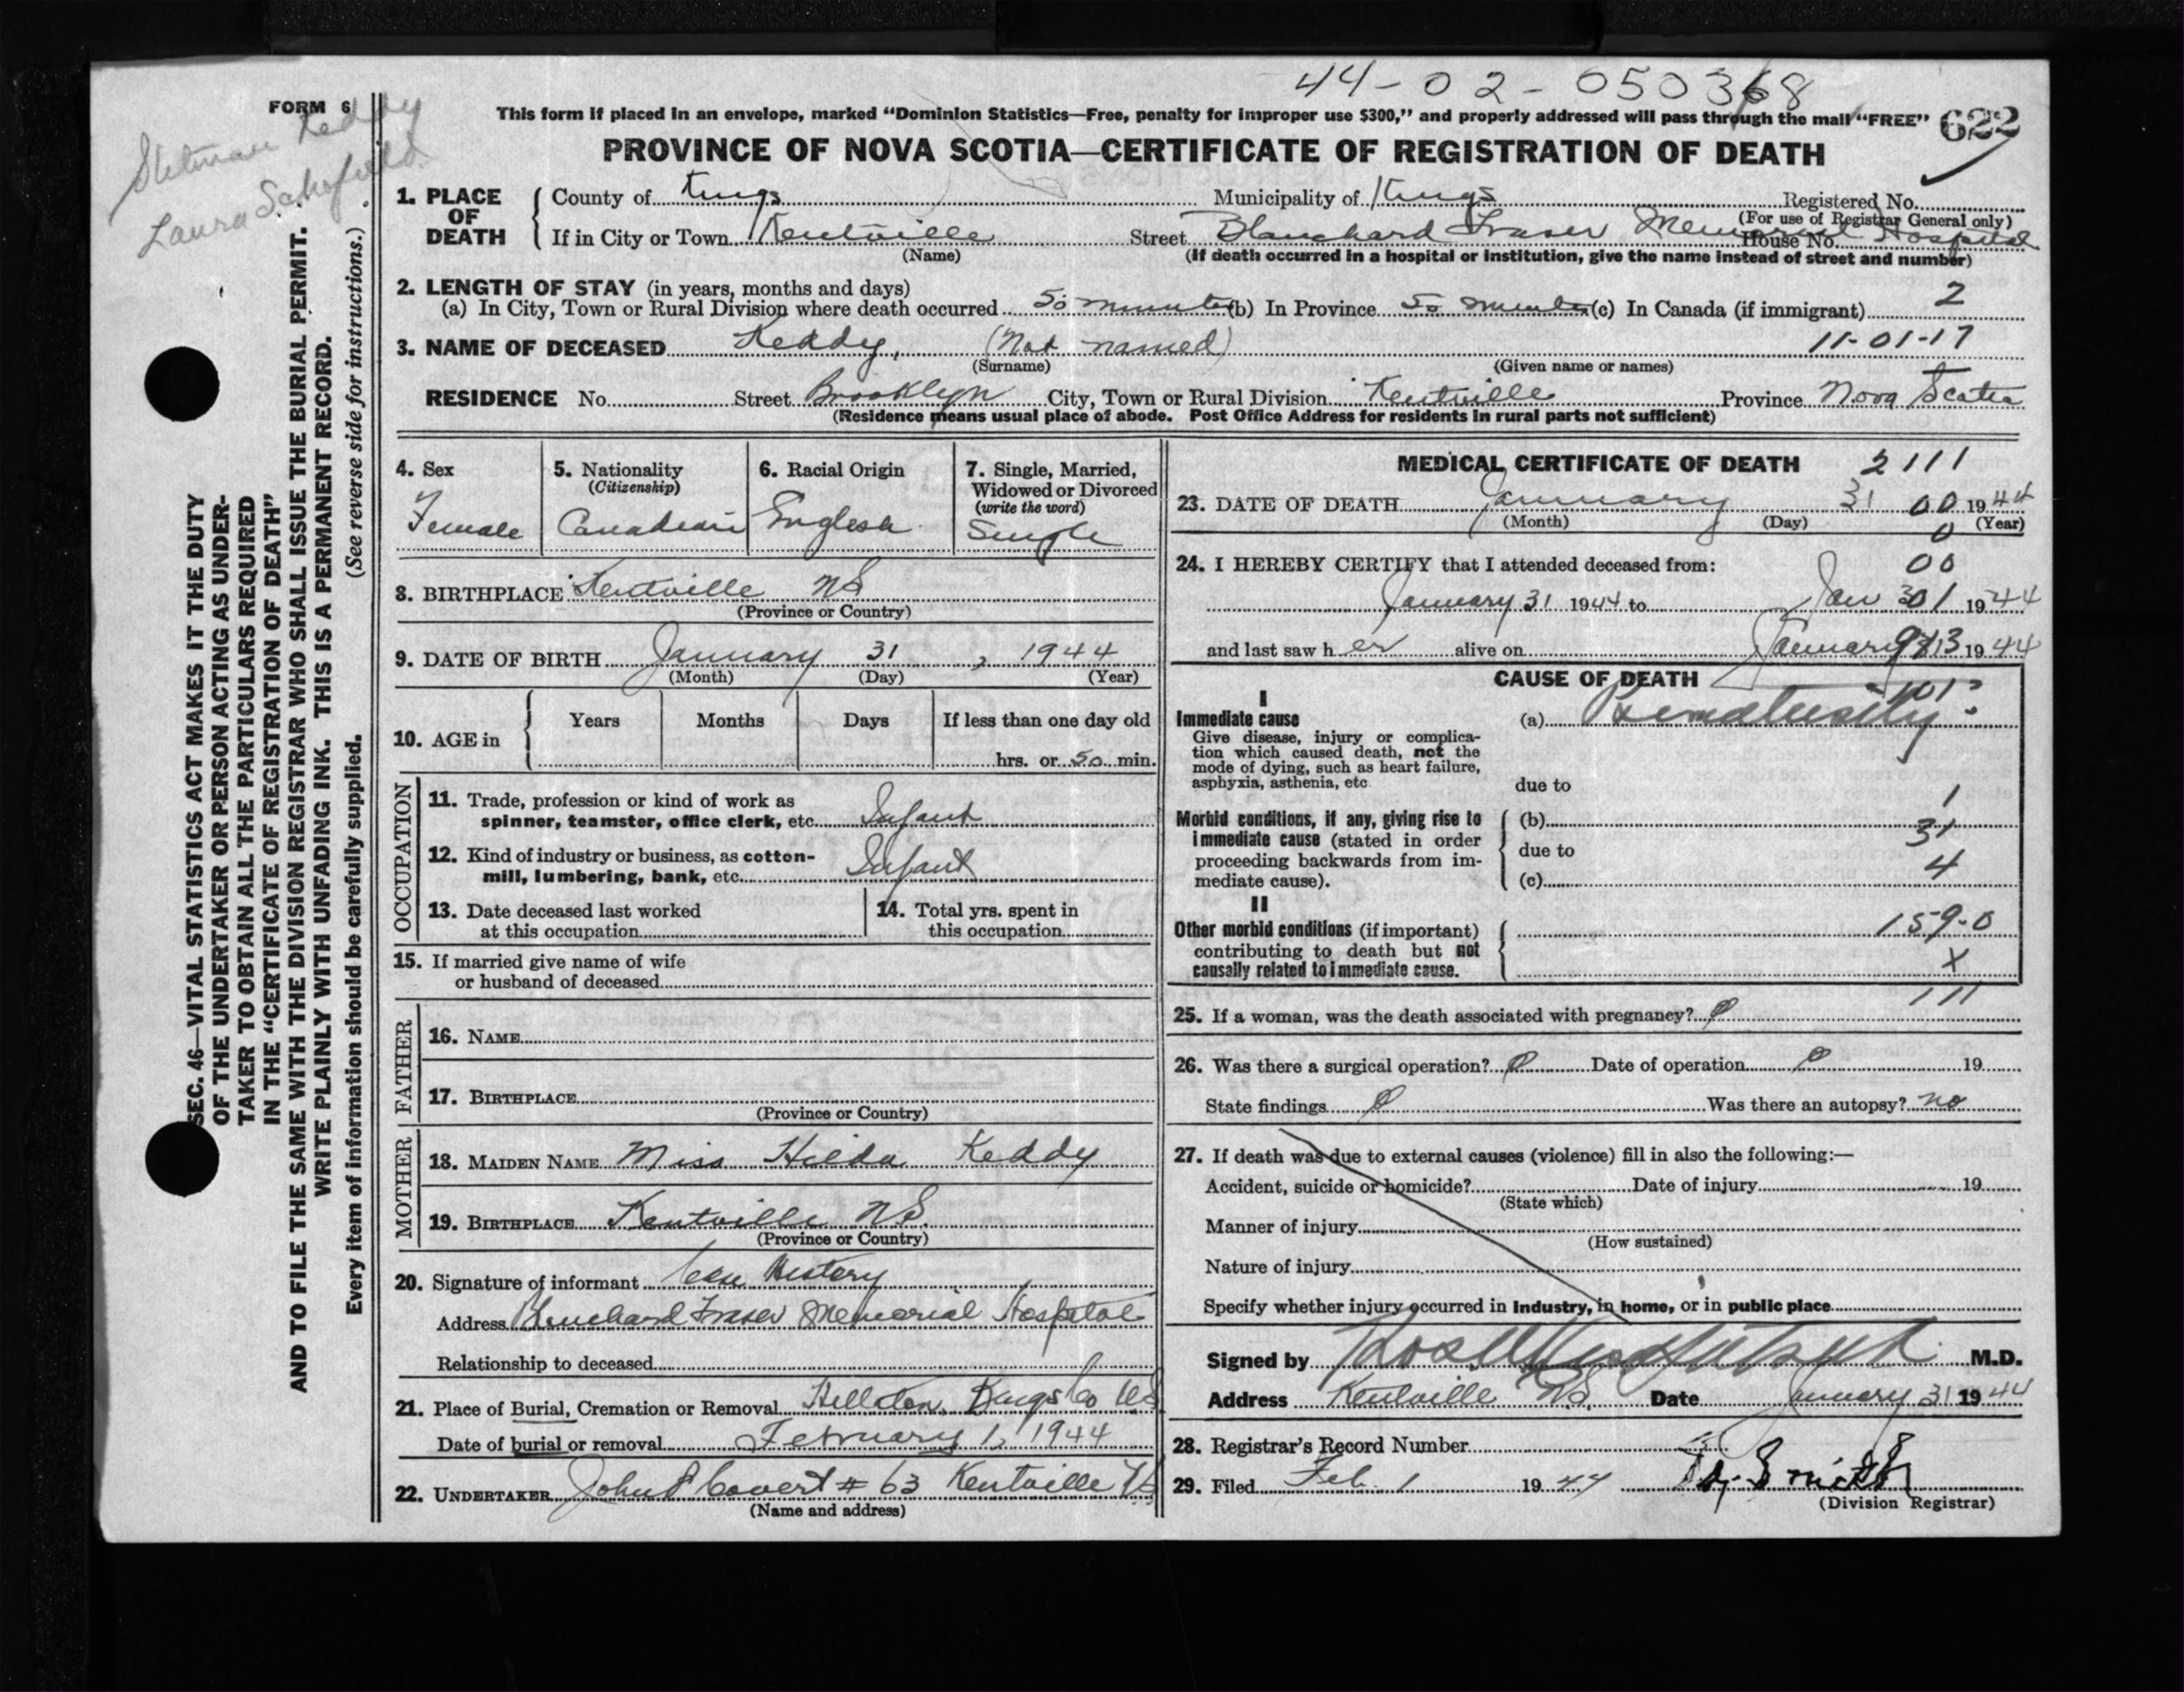 44-02-050368
FORM 6
Keddy
Laura
This form if placed in an envelope, marked “Dominion Statistics—Free, penalty for improper use $300,” and properly addressed will pass through the mail “FREE” 622
PROVINCE OF NOVA SCOTIA—CERTIFICATE OF REGISTRATION OF DEATH
SEC. 46—VITAL STATISTICS ACT MAKES IT THE DUTY
OF THE UNDERTAKER OR PERSON ACTING AS UNDER-
TAKER TO OBTAIN ALL THE PARTICULARS REQUIRED
IN THE “CERTIFICATE OF REGISTRATION OF DEATH”
AND TO FILE THE SAME WITH THE DIVISION REGISTRAR WHO SHALL ISSUE THE BURIAL PERMIT.
WRITE PLAINLY WITH UNFADING INK. THIS IS A PERMANENT RECORD.
Every item of information should be carefully supplied. (See reverse side for instructions.)
1. PLACE OF DEATH
County of Kings Municipality of Kings Registered No.
(For use of Registrar General only)
If in City or Town Kentville Street Blanchard Fraser Memorial Hospital House No.
(Name) (If death occurred in a hospital or institution, give the name instead of street and number)
2. LENGTH OF STAY (in years, months and days)
(a) In City, Town or Rural Division where death occurred 50 minutes (b) In Province 50 minutes (c) In Canada (if immigrant) 2
3. NAME OF DECEASED Keddy, (Not named) 11-01-17
(Surname) (Given name or names)
RESIDENCE No. Street Brooklyn City, Town or Rural Division Kentville Province Nova Scotia
(Residence means usual place of abode. Post Office Address for residents in rural parts not sufficient)
4. Sex Female
5. Nationality (Citizenship) Canadian
6. Racial Origin English
7. Single, Married, Widowed or Divorced (write the word) Single
8. BIRTHPLACE Kentville NS
(Province or Country)
9. DATE OF BIRTH January 31, 1944
(Month) (Day) (Year)
10. AGE in Years Months Days If less than one day old
hrs. or 50 min.
OCCUPATION
11. Trade, profession or kind of work as
spinner, teamster, office clerk, etc. Infant
12. Kind of industry or business, as cotton-
mill, lumbering, bank, etc. Infant
13. Date deceased last worked
at this occupation
14. Total yrs. spent in
this occupation
15. If married give name of wife
or husband of deceased
FATHER
16. NAME
17. BIRTHPLACE
(Province or Country)
MOTHER
18. MAIDEN NAME Miss Hilda Keddy
19. BIRTHPLACE Kentville NS.
(Province or Country)
20. Signature of informant Case History
Address Blanchard Fraser Memorial Hospital
Relationship to deceased
21. Place of Burial, Cremation or Removal Hillaton, Kings Co NS
Date of burial or removal February 1, 1944
22. UNDERTAKER John Covert # 63 Kentville NS
(Name and address)
MEDICAL CERTIFICATE OF DEATH 2111
23. DATE OF DEATH January 31 00 1944
(Month) (Day) (Year)
0
24. I HEREBY CERTIFY that I attended deceased from: 00
January 31 1944 to Jan 31 1944
and last saw her alive on January 1944
CAUSE OF DEATH
I
Immediate cause
Give disease, injury or complica-
tion which caused death, not the
mode of dying, such as heart failure,
asphyxia, asthenia, etc
(a) Prematurity
due to
1
Morbid conditions, if any, giving rise to
immediate cause (stated in order
proceeding backwards from im-
mediate cause).
(b) 31
due to
4
(c)
II
Other morbid conditions (if important)
contributing to death but not
causally related to immediate cause.
159-0
X
111
25. If a woman, was the death associated with pregnancy? 0
26. Was there a surgical operation? 0 Date of operation 0 19
State findings 0 Was there an autopsy? no
27. If death was due to external causes (violence) fill in also the following:—
Accident, suicide or homicide? Date of injury 19
(State which)
Manner of injury
(How sustained)
Nature of injury
Specify whether injury occurred in industry, in home, or in public place
Signed by M.D.
Address Kentville NS. Date January 31 1944
28. Registrar’s Record Number
29. Filed Feb. 1 1944
(Division Registrar)